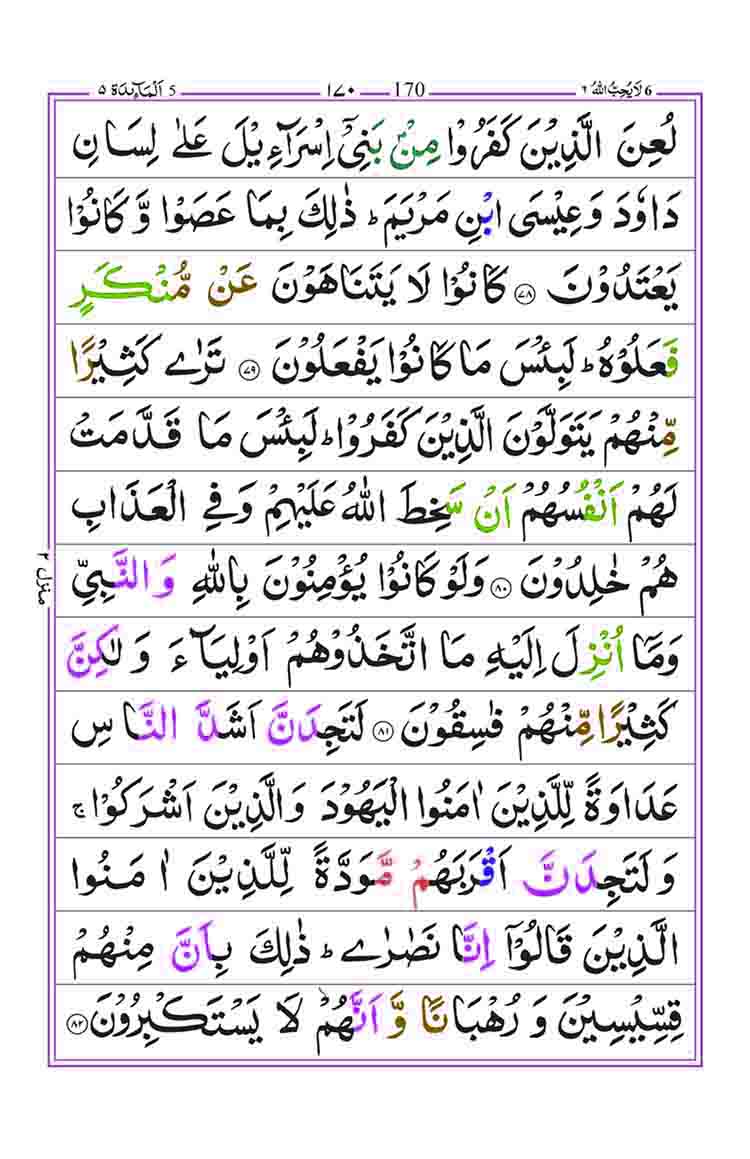 6 لَا یُحِبُّ اللّٰهُ ۶ 170 ۱۷۰ 5 اَلْمَآئِدَة ۵
لُعِنَ الَّذِیْنَ كَفَرُوْا مِنْۢ بَنِیْۤ اِسْرَآءِیْلَ عَلٰی لِسَانِ
دَاوٗدَ وَعِیْسَی ابْنِ مَرْیَمَ ؕ ذٰلِكَ بِمَا عَصَوْا وَّ كَانُوْا
یَعْتَدُوْنَ ۷۸ كَانُوْا لَا یَتَنَاهَوْنَ عَنْ مُّنْكَرٍ
فَعَلُوْهُ ؕ لَبِئْسَ مَا كَانُوْا یَفْعَلُوْنَ ۷۹ تَرٰی كَثِیْرًا
مِّنْهُمْ یَتَوَلَّوْنَ الَّذِیْنَ كَفَرُوْا ؕ لَبِئْسَ مَا قَدَّمَتْ
لَهُمْ اَنْفُسُهُمْ اَنْ سَخِطَ اللّٰهُ عَلَیْهِمْ وَفِی الْعَذَابِ
هُمْ خٰلِدُوْنَ ۸۰ وَلَوْ كَانُوْا یُؤْمِنُوْنَ بِاللّٰهِ وَالنَّبِیِّ
وَمَاۤ اُنْزِلَ اِلَیْهِ مَا اتَّخَذُوْهُمْ اَوْلِیَآءَ وَ لٰكِنَّ
كَثِیْرًا مِّنْهُمْ فٰسِقُوْنَ ۸۱ لَتَجِدَنَّ اَشَدَّ النَّاسِ
عَدَاوَةً لِّلَّذِیْنَ اٰمَنُوا الْیَهُوْدَ وَالَّذِیْنَ اَشْرَكُوْا ۚ
وَ لَتَجِدَنَّ اَقْرَبَهُمْ مَّوَدَّةً لِّلَّذِیْنَ اٰمَنُوا
الَّذِیْنَ قَالُوْۤا اِنَّا نَصٰرٰی ؕ ذٰلِكَ بِاَنَّ مِنْهُمْ
قِسِّیْسِیْنَ وَ رُهْبَانًا وَّ اَنَّهُمْ لَا یَسْتَكْبِرُوْنَ ۸۲
منزل ۲